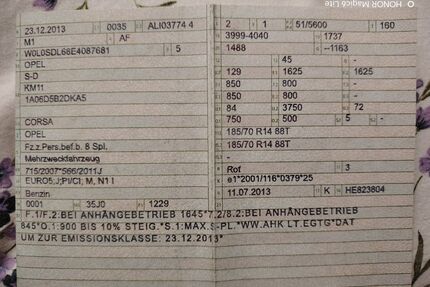 HONOR Magic6 Lite
23.12.2013 0035 ALI03774 4
M1 AF
W0L0SDL68E4087681 5
OPEL
S-D
KM11
1A06D5B2DKA5
CORSA
OPEL
Fz.z.Pers.bef.b. 8 Spl.
Mehrzweckfahrzeug
715/2007*566/2011J
EURO5;J;PI/CI; M, N1 I
Benzin
0001 35J0 1229
2 1 51/5600 160
3999-4040 1737
1488 --1163
- 45 - -
129 1625 1625
850 800 -
850 800 -
84 3750 72
750 500 5 -
185/70 R14 88T
185/70 R14 88T
-
Rot 3
e1*2001/116*0379*25
11.07.2013 K HE823804
F.1/F.2:BEI ANHÄNGEBETRIEB 1645*7.2/8.2:BEI ANHÄNGEBETRIEB
845*O.1:900 BIS 10% STEIG.*S.1:MAX.5-PL.*WW.AHK LT.EGTG*DAT
UM ZUR EMISSIONSKLASSE: 23.12.2013*